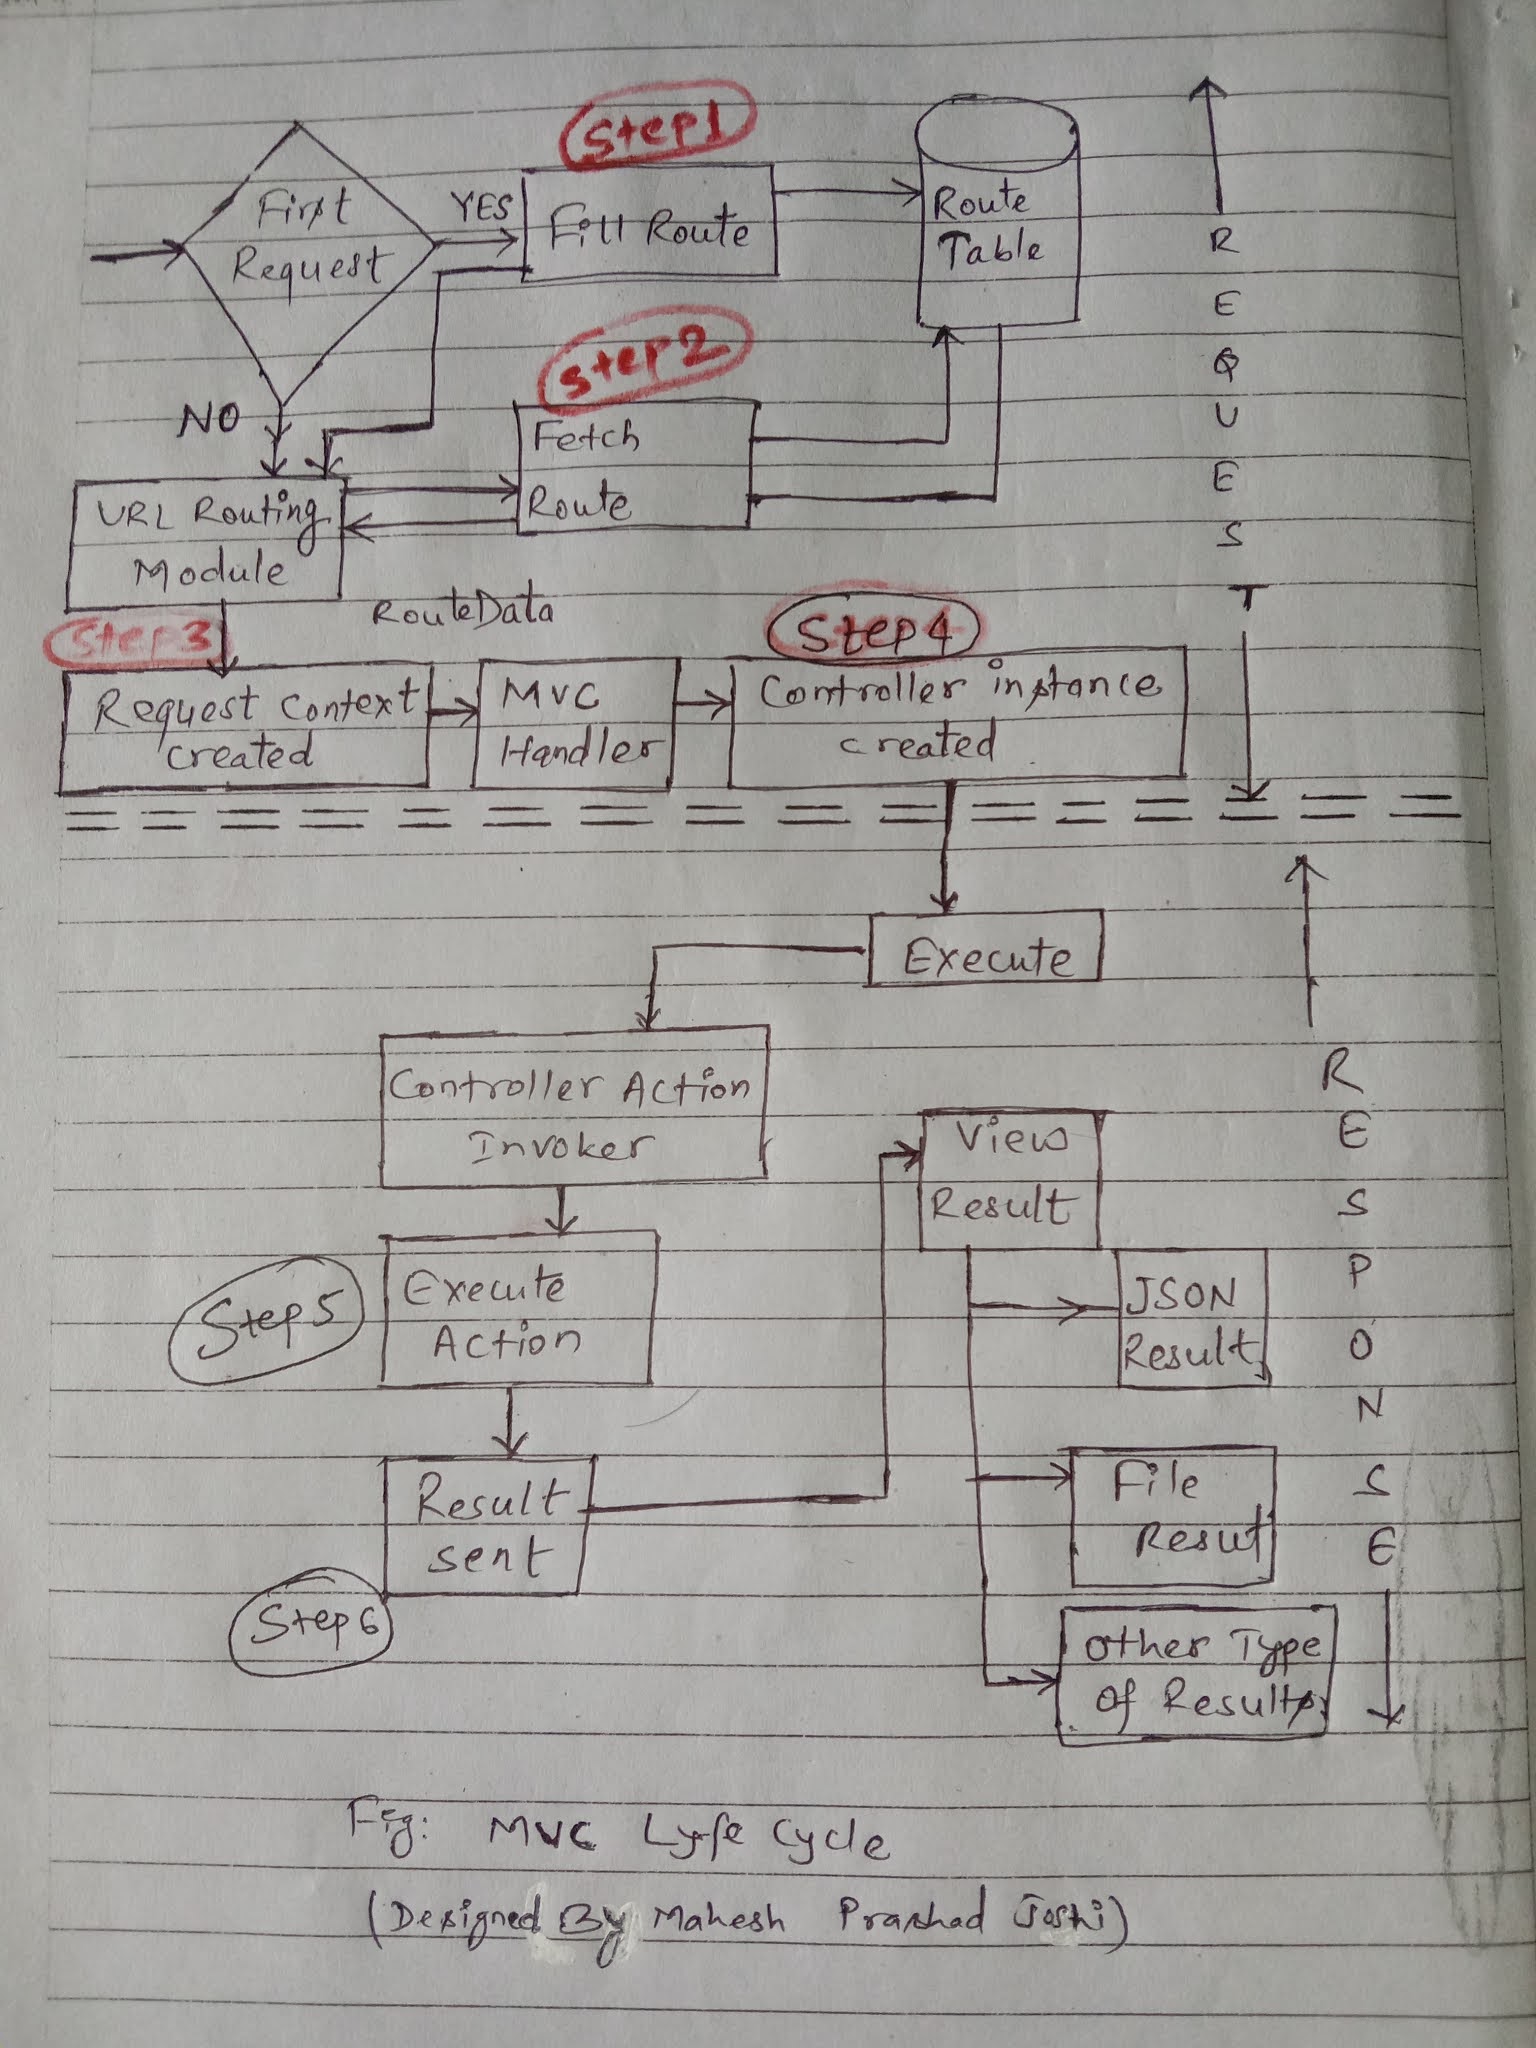 Step1
First
Request
YES
Fill Route
Route
Table
Step2
NO
Fetch
Route
URL Routing
Module
RouteData
Step3
Step4
Request Context
created
MVC
Handler
Controller instance
created
R
E
Q
U
E
S
T
Execute
Controller Action
Invoker
View
Result
Step5
Execute
Action
JSON
Result
Result
sent
File
Resut
Step6
Other Type
Of Results
R
E
S
P
O
N
S
E
Fig: MVC Lyfe Cycle
(Designed By Mahesh Prashad Joshi)